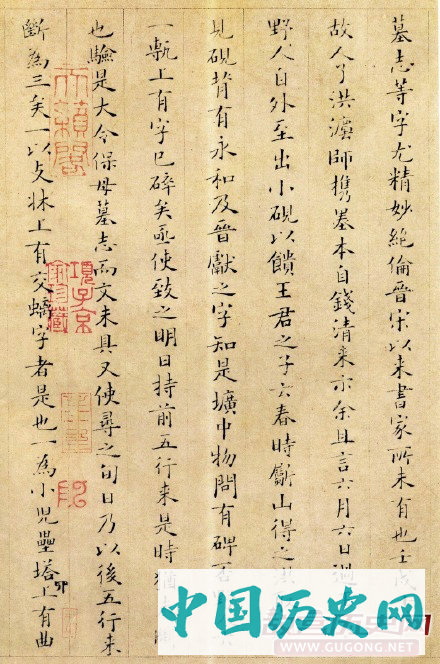 墓志等字尤精妙絕倫晉宋以来書家所未有也壬戌
故人了洪灋師携墨本自錢清来示余且言六月六日過
野人自外至出小硯以饋王君之子云春時斸山得之洪
見硯背有永和及晉獻之字知是壙中物問有碑否
一甎上有字已碎矣亟使致之明日持前五行来是時
也驗是大令保母墓志而文未具又使尋之旬日乃以後五行来
斷為三矣一以支牀上有交螭字者是也一為小児壘塔上有曲
卯
天籟閣
項子京家珍藏
中国历史网
WWW.GUGONG.NET